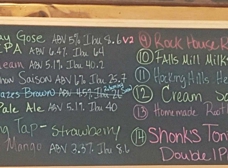 y Gose ABV 5% Ibu 8.6 V2
IPA ABV 6.4% Ibu 64
eam ABV 5.1% Ibu 40.2
how Saison ABV 6% Ibu 25.7
azes Brown ABV 4.5% Ibu
Pale Ale ABV 5.1% Ibu 40
g Tap - Strawberry
Mango ABV 3.3% Ibu 8.6
9 Rock House R
10 Falls Mill Milk
11 Hocking Hills He
12 Cream So
13 Homemade Root
14 Shonks Toni
Double IP